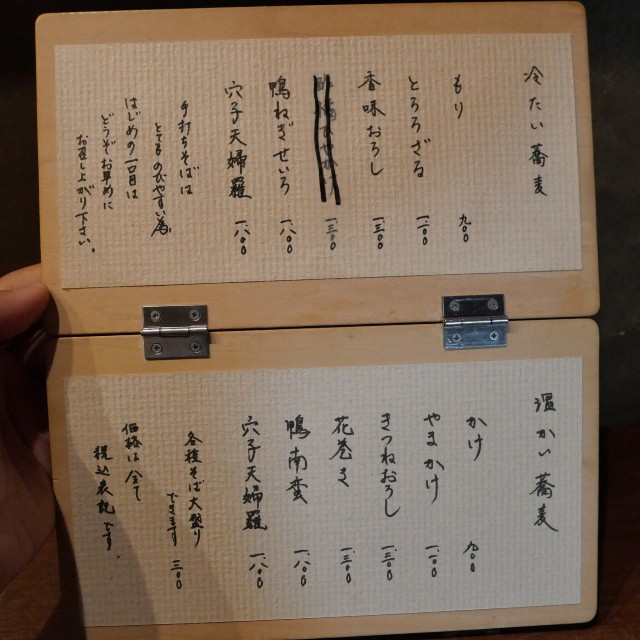 冷たい蕎麦
もり 九〇〇
とろろざる
香味おろし 一三〇〇
一三〇〇
鴨ねぎせいろ 一八〇〇
穴子天婦羅 一八〇〇
手打ちそばは
とてものびやすい為
はじめの一口目は
どうぞお早めに
お召し上がり下さい。
温かい蕎麦
かけ 九〇〇
やまかけ
きつねおろし 一三〇〇
花巻き 一三〇〇
鴨南蛮 一八〇〇
穴子天婦羅 一八〇〇
各種そば大盛り
できます 三〇〇
価格は全て
税込表記です。